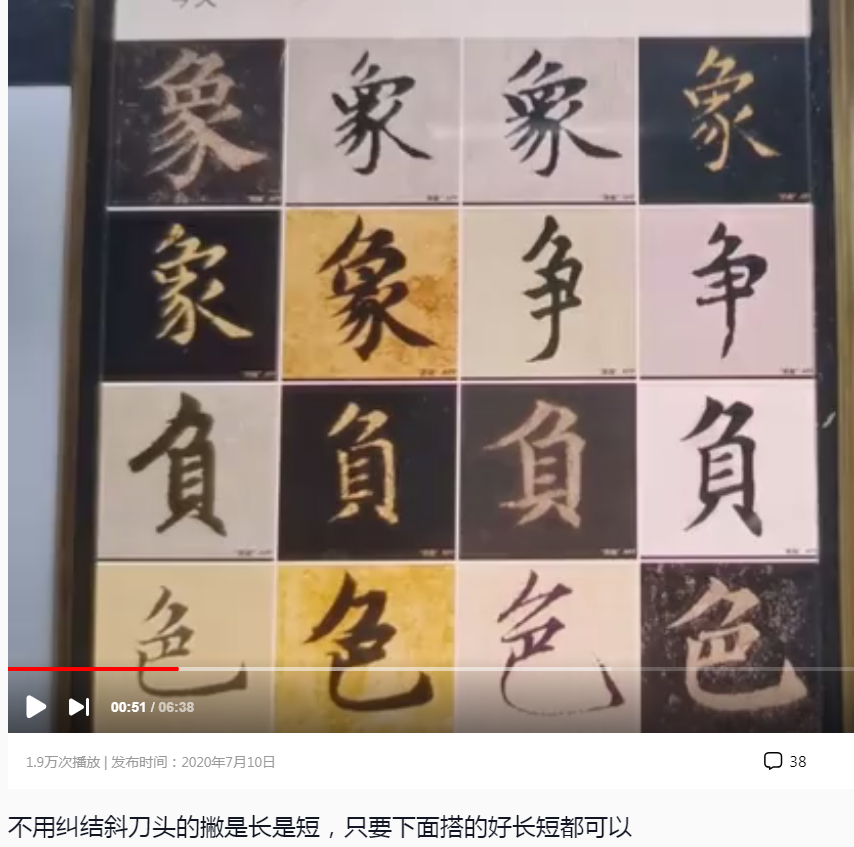 象 象 象 象
象 象 争 争
負 負 負 負
色 色 色 色
00:51 / 06:38
1.9万次播放 | 发布时间：2020年7月10日
38
不用纠结斜刀头的撇是长是短，只要下面搭的好长短都可以